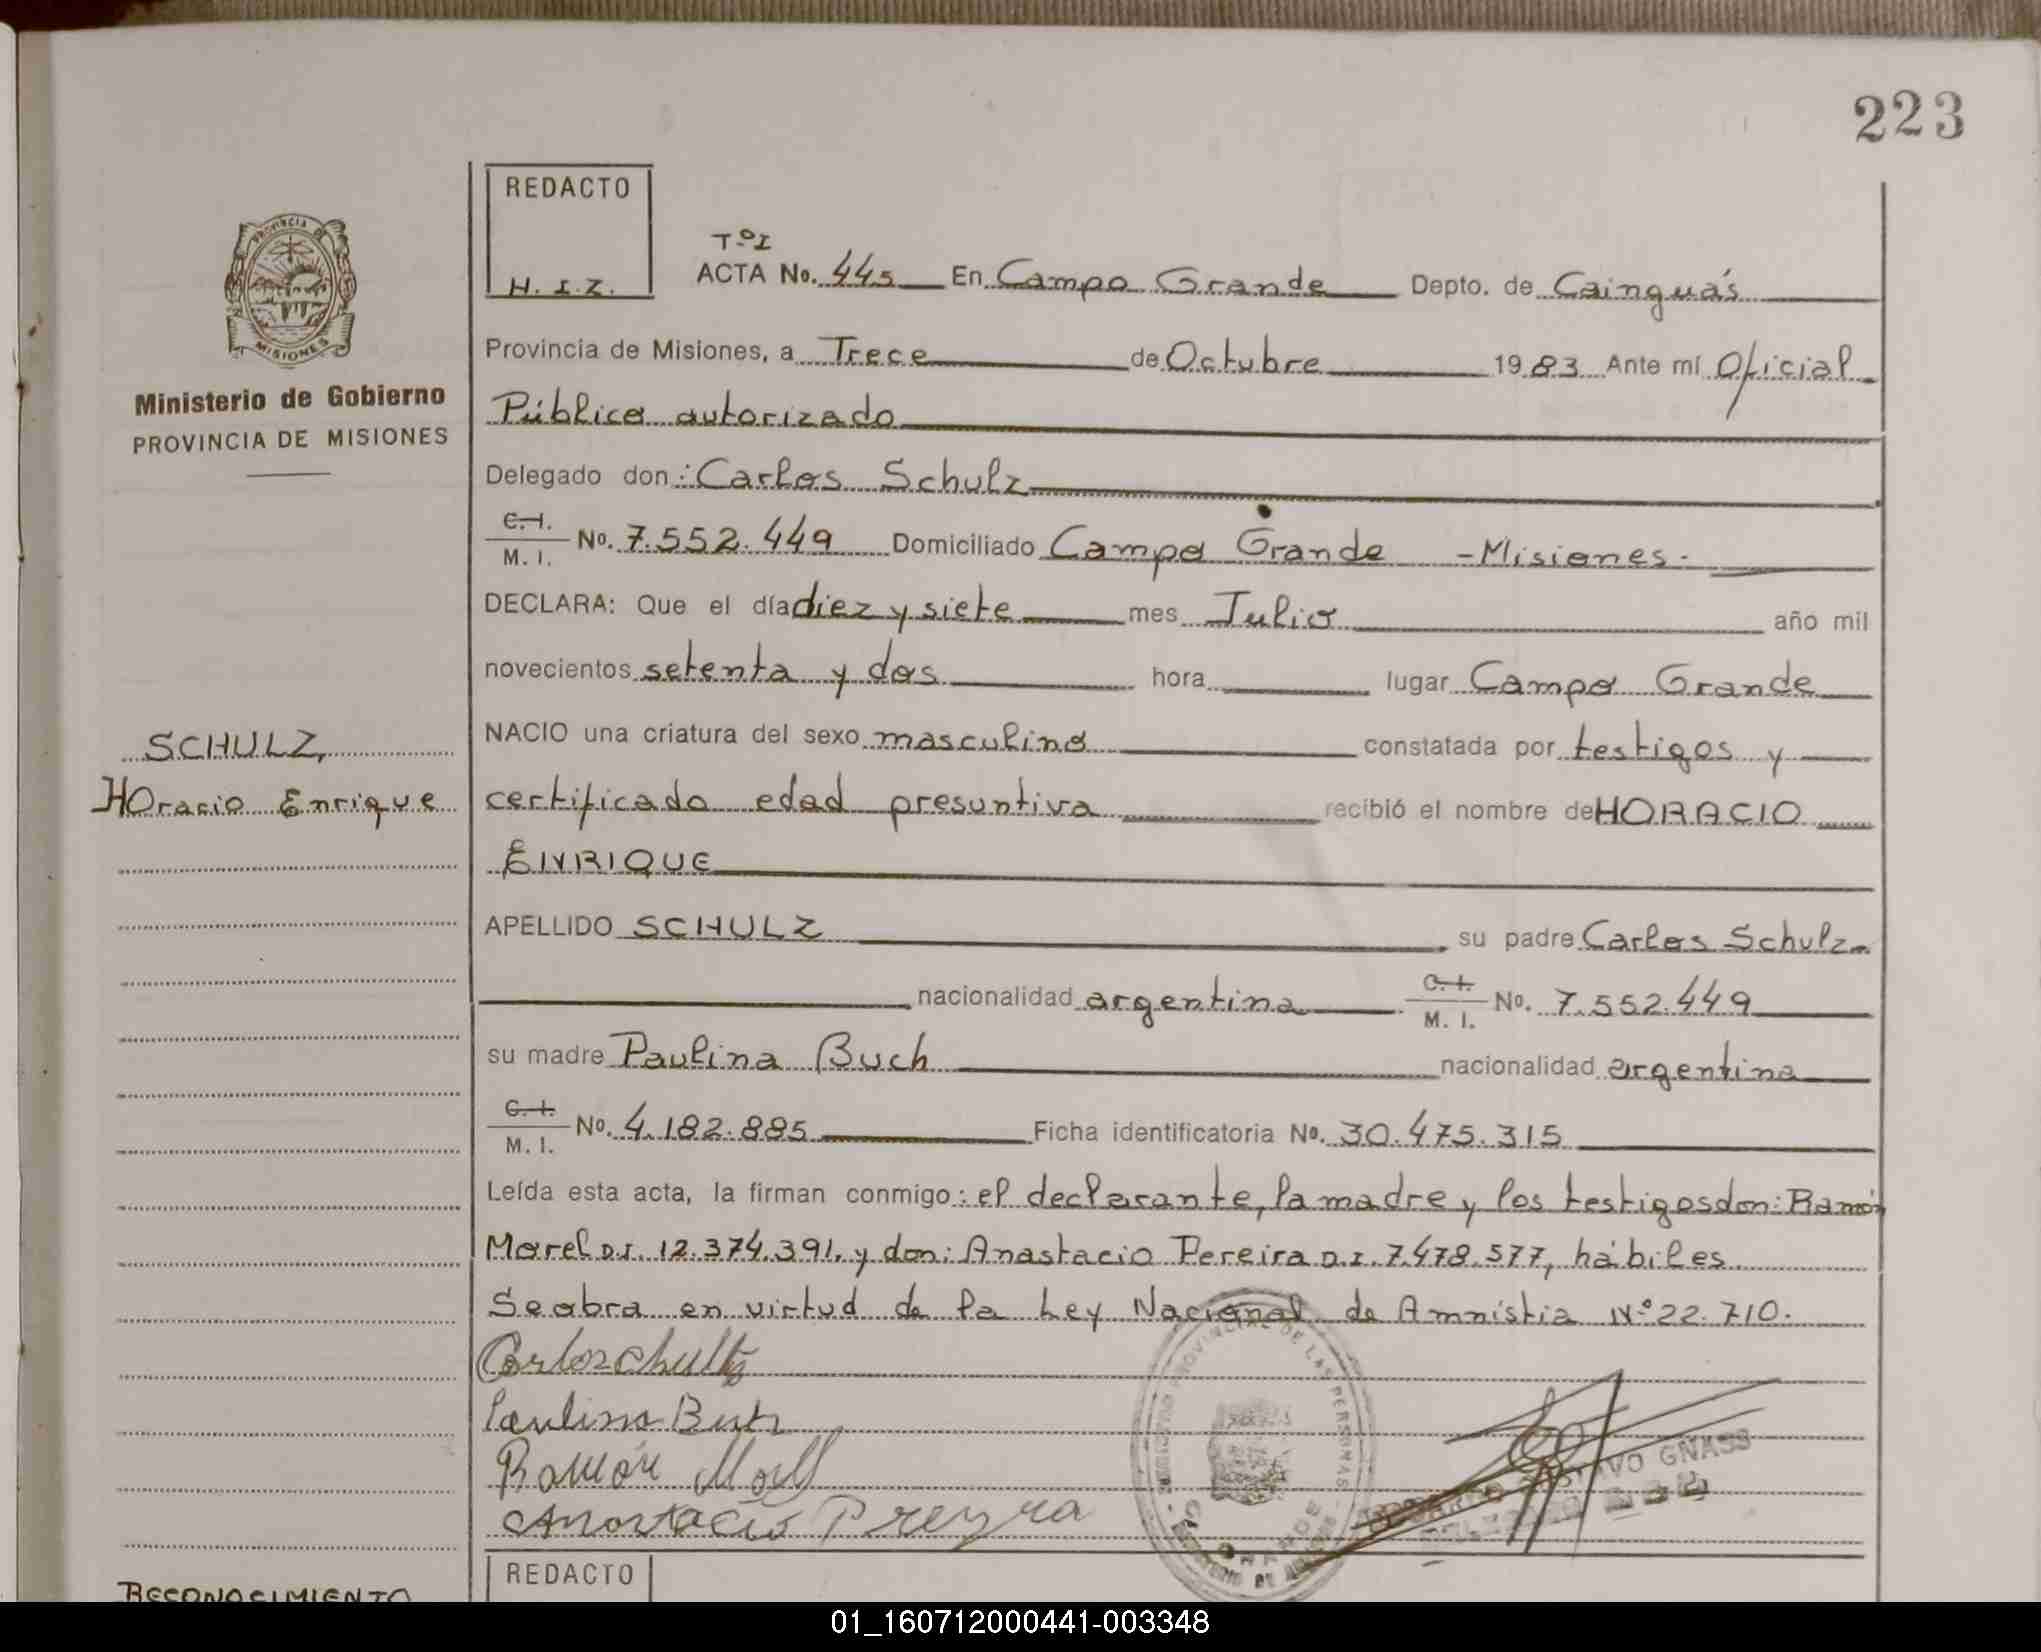 223
REDACTO
H. I. Z.
Tº I
ACTA No. 445 En Campo Grande Depto. de Cainguás
Provincia de Misiones, a Trece de Octubre 1983 Ante mí Oficial
Público autorizado
Delegado don: Carlos Schulz
C. I. M. I. No. 7.552.449 Domiciliado Campo Grande - Misiones -
DECLARA: Que el día diez y siete mes Julio año mil
novecientos setenta y dos hora lugar Campo Grande
NACIO una criatura del sexo masculino constatada por testigos y
certificado edad presuntiva recibió el nombre de HORACIO
ENRIQUE
APELLIDO SCHULZ su padre Carlos Schulz
nacionalidad argentina C. I. M. I. No. 7.552.449
su madre Paulina Buch nacionalidad argentina
C. I. M. I. No. 4.182.885 Ficha identificatoria No. 30.475.315
Leída esta acta, la firman conmigo: el declarante, la madre y los testigos don: Ramón
Morel D.I. 12.374.391, y don: Anastacio Pereira D.I. 7.478.577, hábiles
Se abra en virtud de la Ley Nacional de Amnistia Nº 22.710.
Paulina Buch
Ramón
Anastacio Preyra
GNASS
REDACTO
PROVINCIA DE
MISIONES
Ministerio de Gobierno
PROVINCIA DE MISIONES
SCHULZ,
HOracio Enrique
RECONOCIMIENTO
01_160712000441-003348